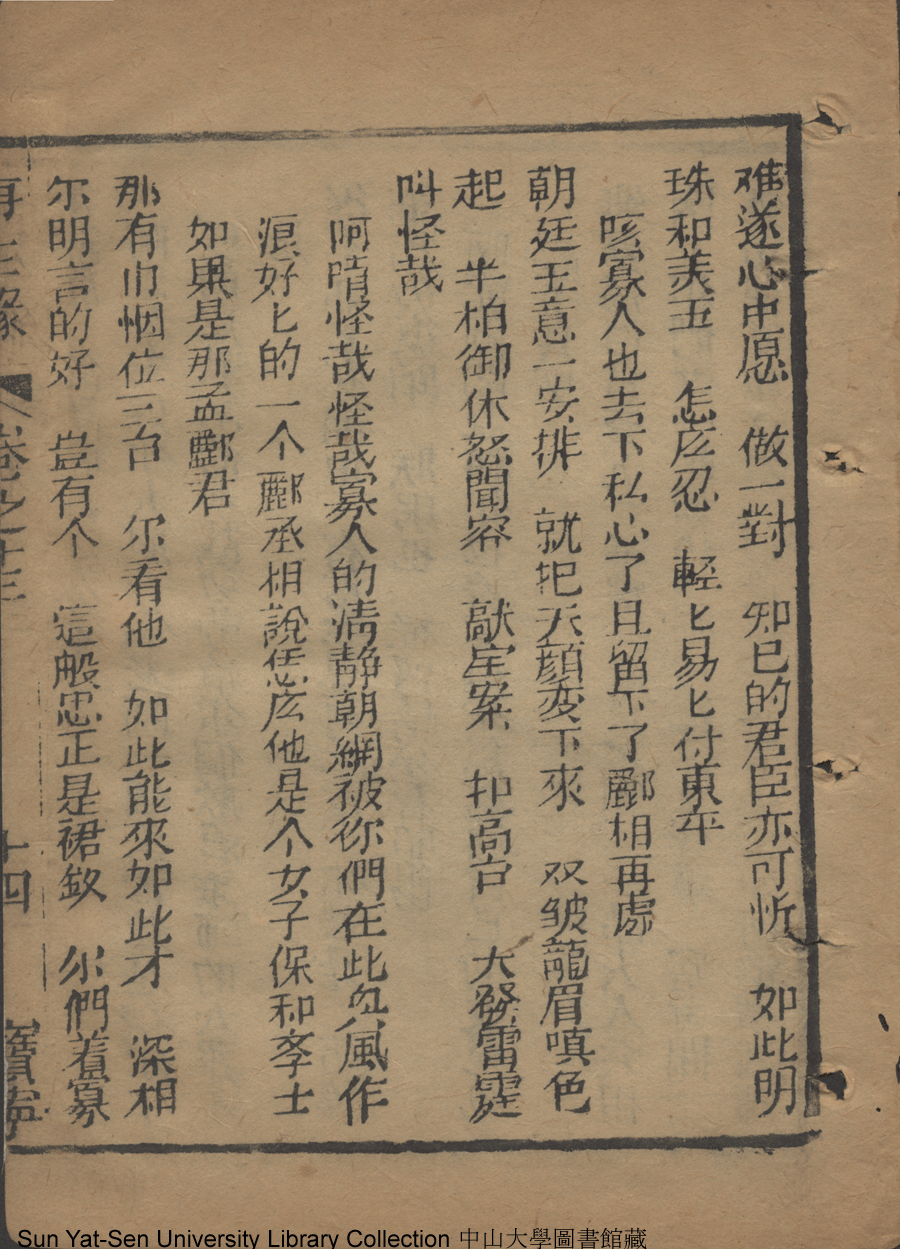 难遂心中愿 做一對 知已的君臣亦可忻 如此明
珠和美五 怎庅忍 輕匕易匕付東卒
咳寡人也去下私心了且留下了酈相再處
朝廷玉意一安排 就把天顔变下來 双皱龍眉嗔色
起 半柏御休怒聞容 敲宝案 扣高台 大發雷霆
呌怪哉
呵唷怪哉怪哉寡人的清静朝綱被你們在此兴風作
浪好匕的一个酈承相說恁庅他是个女子保和孝士
如果是那孟酈君
那有巾帼位三台 尔看他 如此能來如此才 深相
尔明言的好 豈有个 這般忠正是裙釵 尔們着寡
再生緣 卷之十三 十四